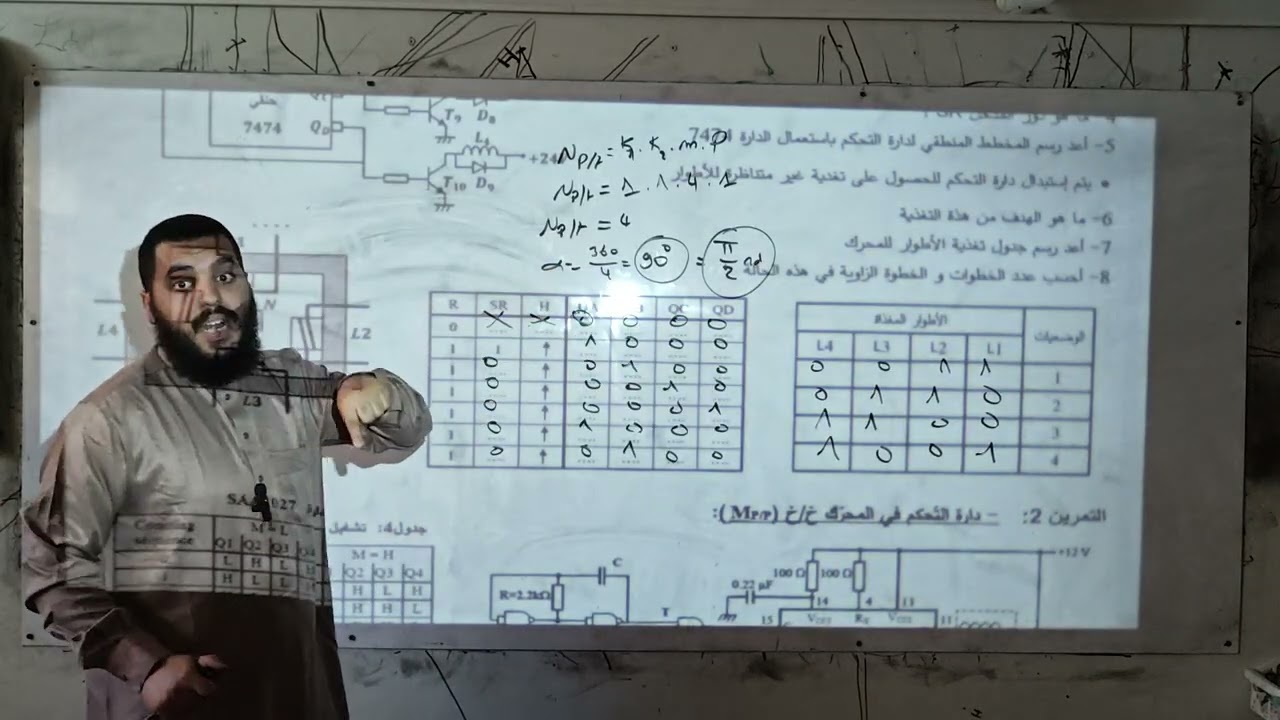 حلقي
7474
Q_D
T₉
D₈
L₄
+24
T₁₀
D₉
5- أعد رسم المخطط المنطقي لدارة التحكم باستعمال الدارة 7474
• يتم إستبدال دارة التحكم للحصول على تغذية غير متناظرة للأطوار
6- ما هو الهدف من هذة التغذية
7- أعد رسم جدول تغذية الأطوار للمحرك
8- أحسب عدد الخطوات و الخطوة الزاوية في هذه الحالة
N_P/t = K₁ . K₂ . m . P
N_P/t = 1 . 1 . 4 . 1
N_P/t = 4
α = 360/4 = 90° = π/2 rd
L4
N
L2
L3
R SR H QC QD
0 X X 0 0 0 0
1 1 ↑ 1 0 0 0
1 0 ↑ 0 1 0 0
1 0 ↑ 0 0 1 0
1 0 ↑ 0 0 0 1
1 0 ↑ 1 0 0 0
1 0 ↑ 0 1 0 0
الوضعيات الأطوار المغذاة
L4 L3 L2 L1
0 0 1 1 1
0 1 1 0 2
1 1 0 0 3
1 0 0 1 4
التمرين 2: – دارة التحكم في المحرك خ/خ (M_P/P):
جدول4: تشغيل
Q1 Q2 Q3 Q4
M = H
Q2 Q3 Q4
H L H
H H L
R=2.2kΩ
C
T
0.22 µF
100 Ω
100 Ω
+12 V
15
14
4
13
11